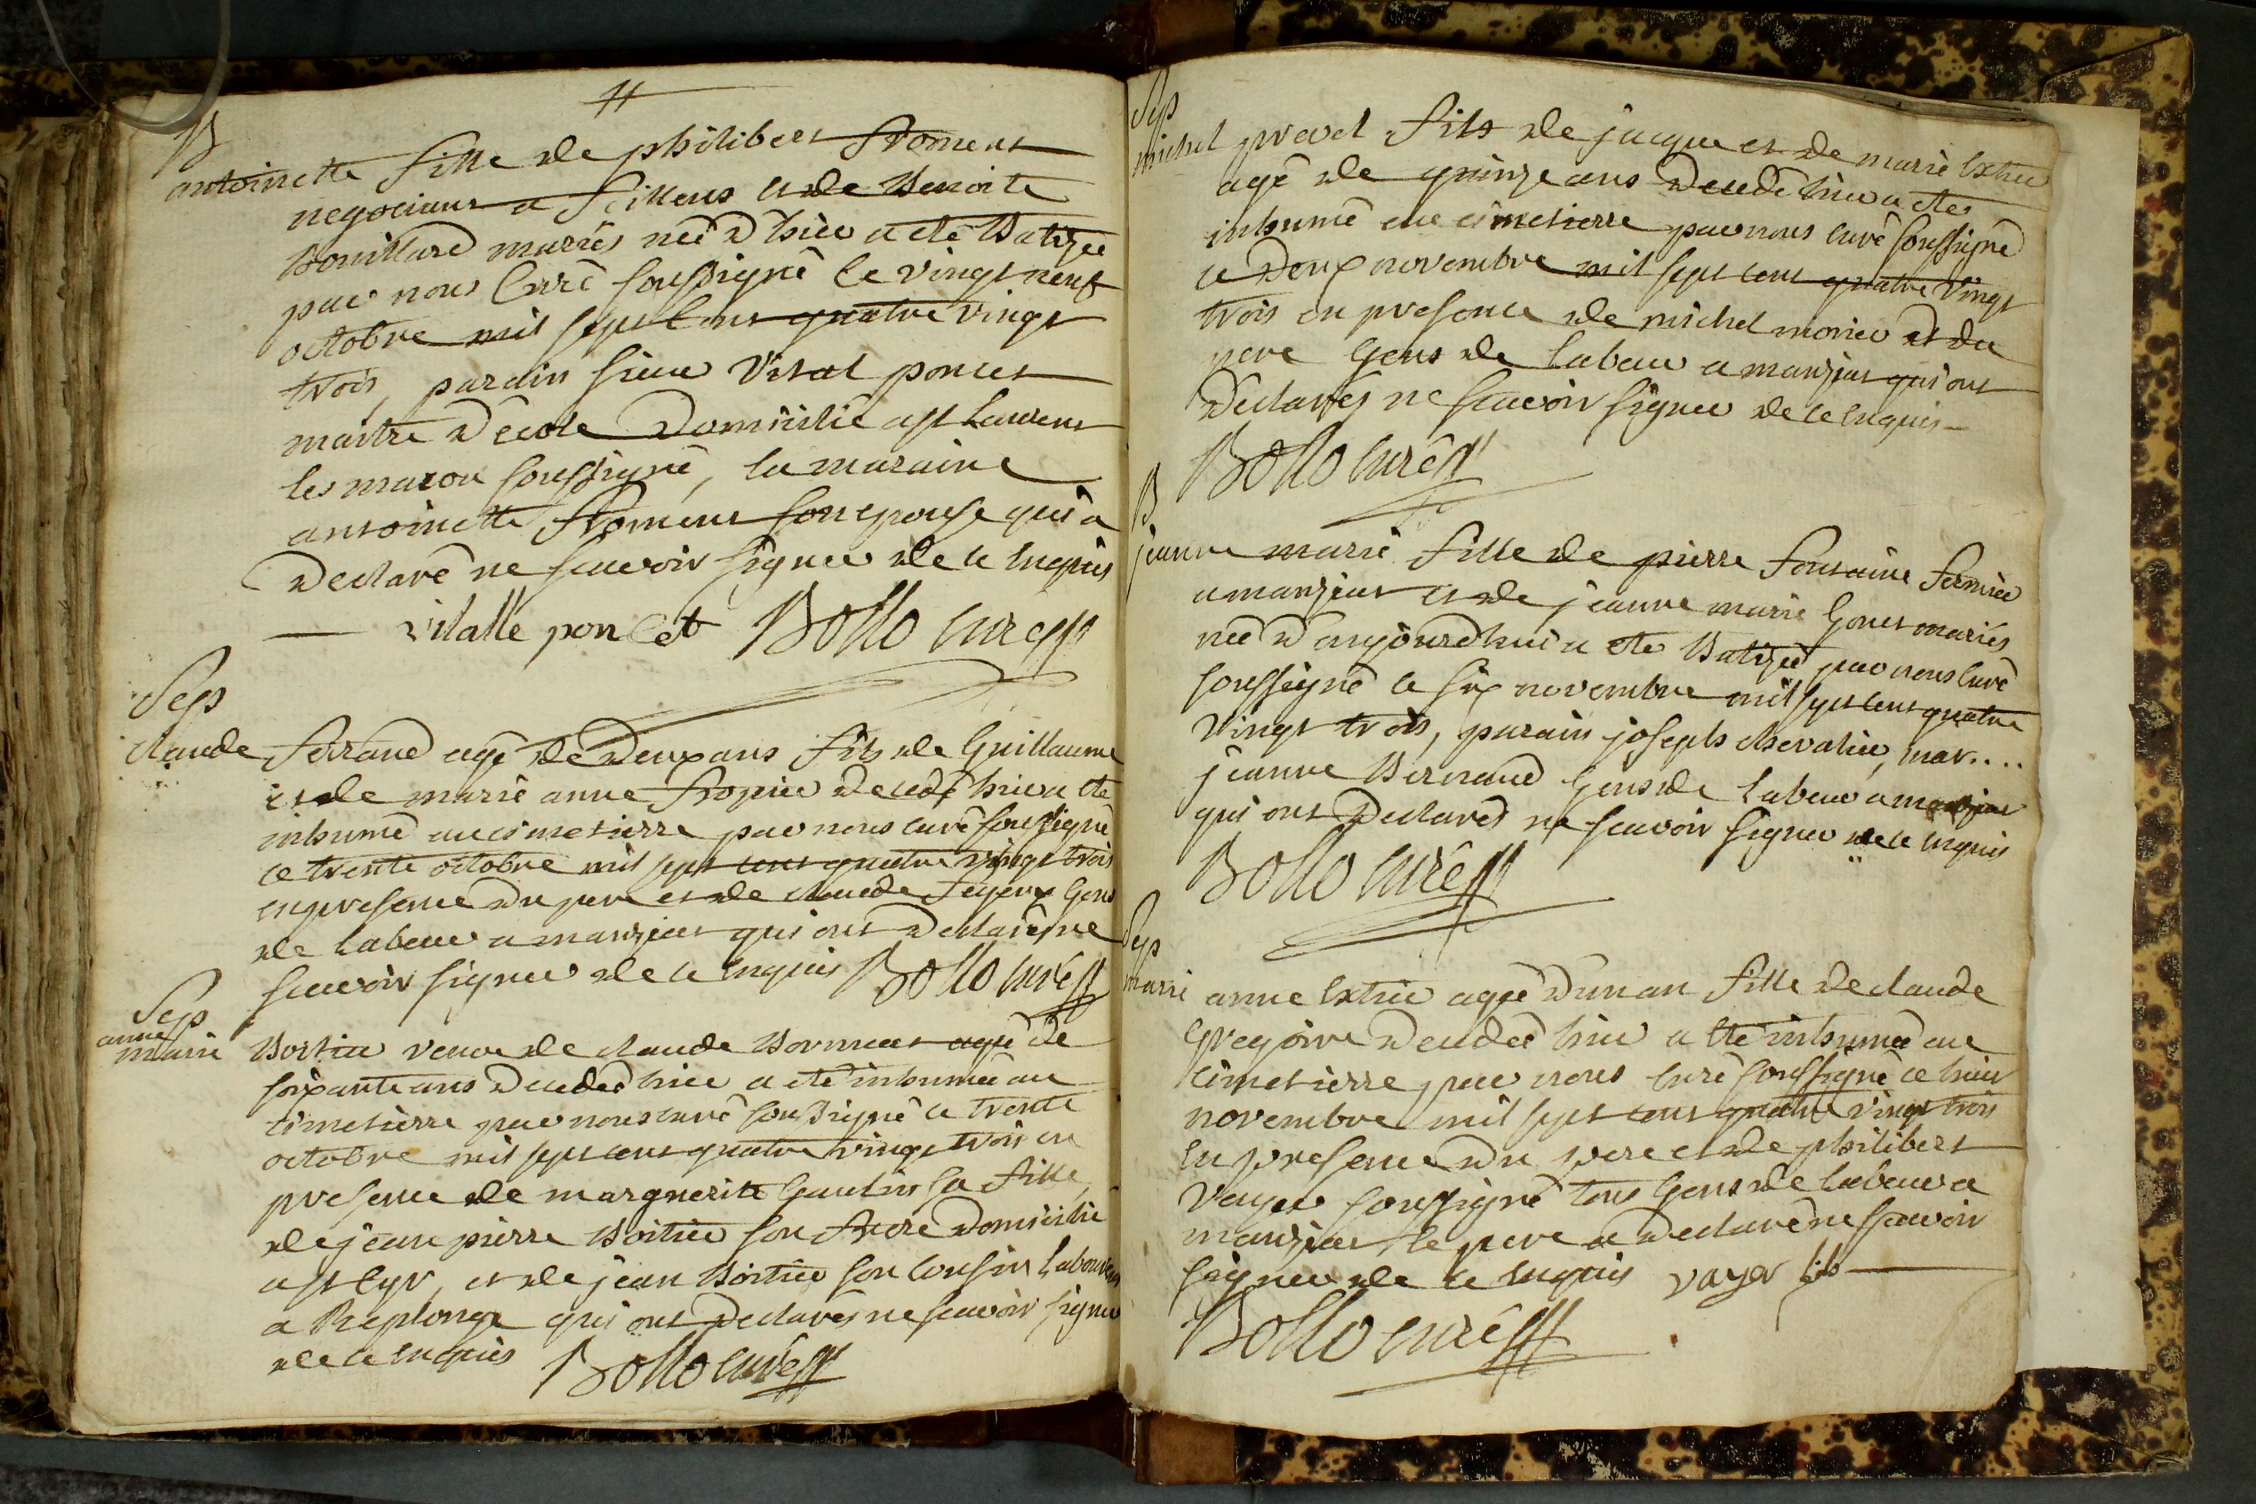 11
B
antoinette fille de philibert froment
negociant a et de Benoite
Bouillard mariés née d'hier a eté Batizée
par nous Curé soussigné le vingt neuf
octobre mil sept Cent quatre vingt
trois, parain sieur Vital poncet
maitre d'ecole Domicilié a st Laurent
les macon soussigné, la maraine
antoinette froment son epouse qui a
declaré ne scavoir signer de ce enquis
vitalle poncet Bollo curé
Sep
claude ferrand agé de deux ans fils de Guillaume
et de marie anne decedé hier a eté
inhumé au cimetierre par nous curé soussigné
ce trente octobre mil sept cent quatre vingt trois
en presence du pere et de claude Gens
de labeur a manziat qui ont declarés ne
scavoir signer de ce enquis Bollo curé
Sep
anne
marie Bortier veuve de claude agé de
soixante ans decedée hier a eté inhumée au
cimetierre par nous curé soussigné ce trente
octobre mil sept cent quatre vingt trois en
presence de marguerite sa fille,
de jean pierre Boitier son frere Domicilié
a st Cyr, et de jean Boitier son cousin laboureur
a Replonge qui ont declarés ne scavoir signer
de ce enquis Bollo curé
Sep
michel prevel fils de jacque et de marie Extier
agé de quinze ans decedé hier a eté
inhumé au cimetierre par nous curé soussigné
ce deux novembre mil sept cent quatre vingt
trois en presence de michel morier et du
pere Gens de labeur a manziat qui ont
declarés ne scavoir signer de ce enquis
Bollo curé
B
jeanne marie fille de pierre fontaine fermier
a manziat et de jeanne marie Gonet mariés
née d'aujourdhui a eté Batizée par nous curé
soussigné ce six novembre mil sept cent quatre
vingt trois, parain joseph chevalier, mar....
jeanne Bernard Gens de labeur a manziat
qui ont declarés ne scavoir signer de ce enquis
Bollo curé
Sep
marie anne Extier agée d'un an fille de claude
Gregoire decedée hier a eté inhumée au
cimetierre par nous curé soussigné ce huit
novembre mil sept cent quatre vingt trois
en presence du pere et de philibert
Voyer soussigné tous Gens de labeur a
manziat, le pere a declaré ne scavoir
signer de ce enquis vayer
Bollo curé